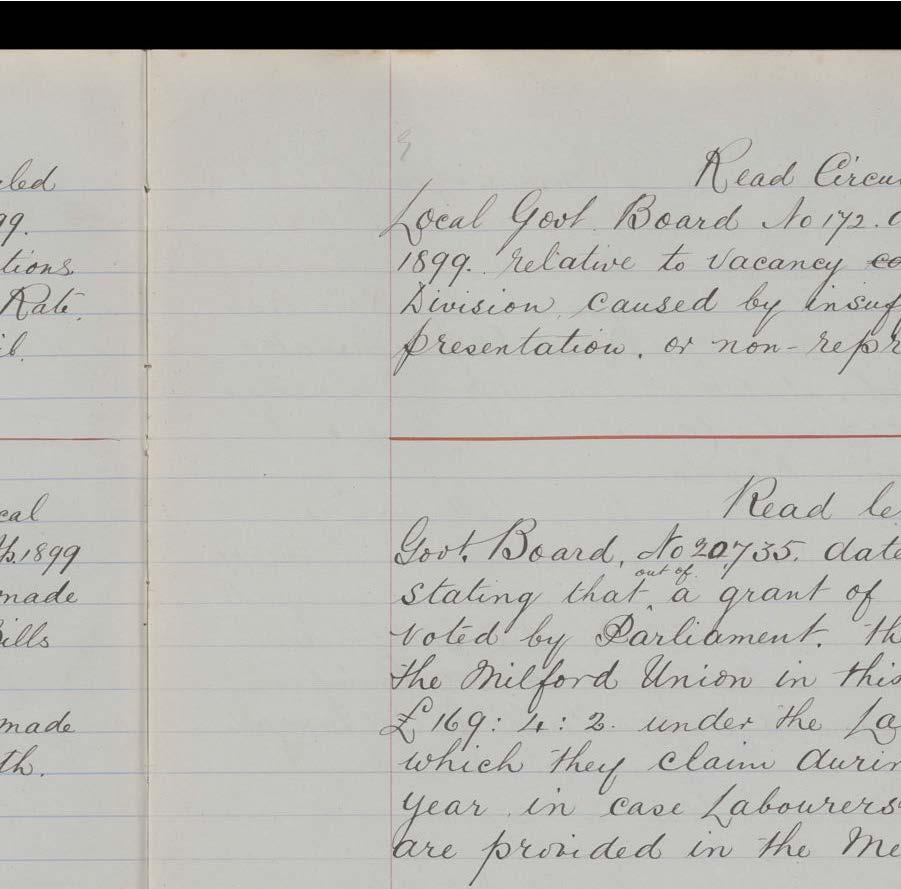 led
99.
tions.
Rate.
ib.
cal
1899
made
Bills
made
th.
Read Circu
Local Govt. Board No 172.
1899. relative to Vacancy co
Division, caused by insuf
presentation, or non-repr
Read le
Govt. Board, No 20,735. date
out of
stating that a grant of
voted by Parliament. th
the Milford Union in this
£169: 4: 2. under the La
which they claim durin
Year, in case Labourers
are provided in the Me